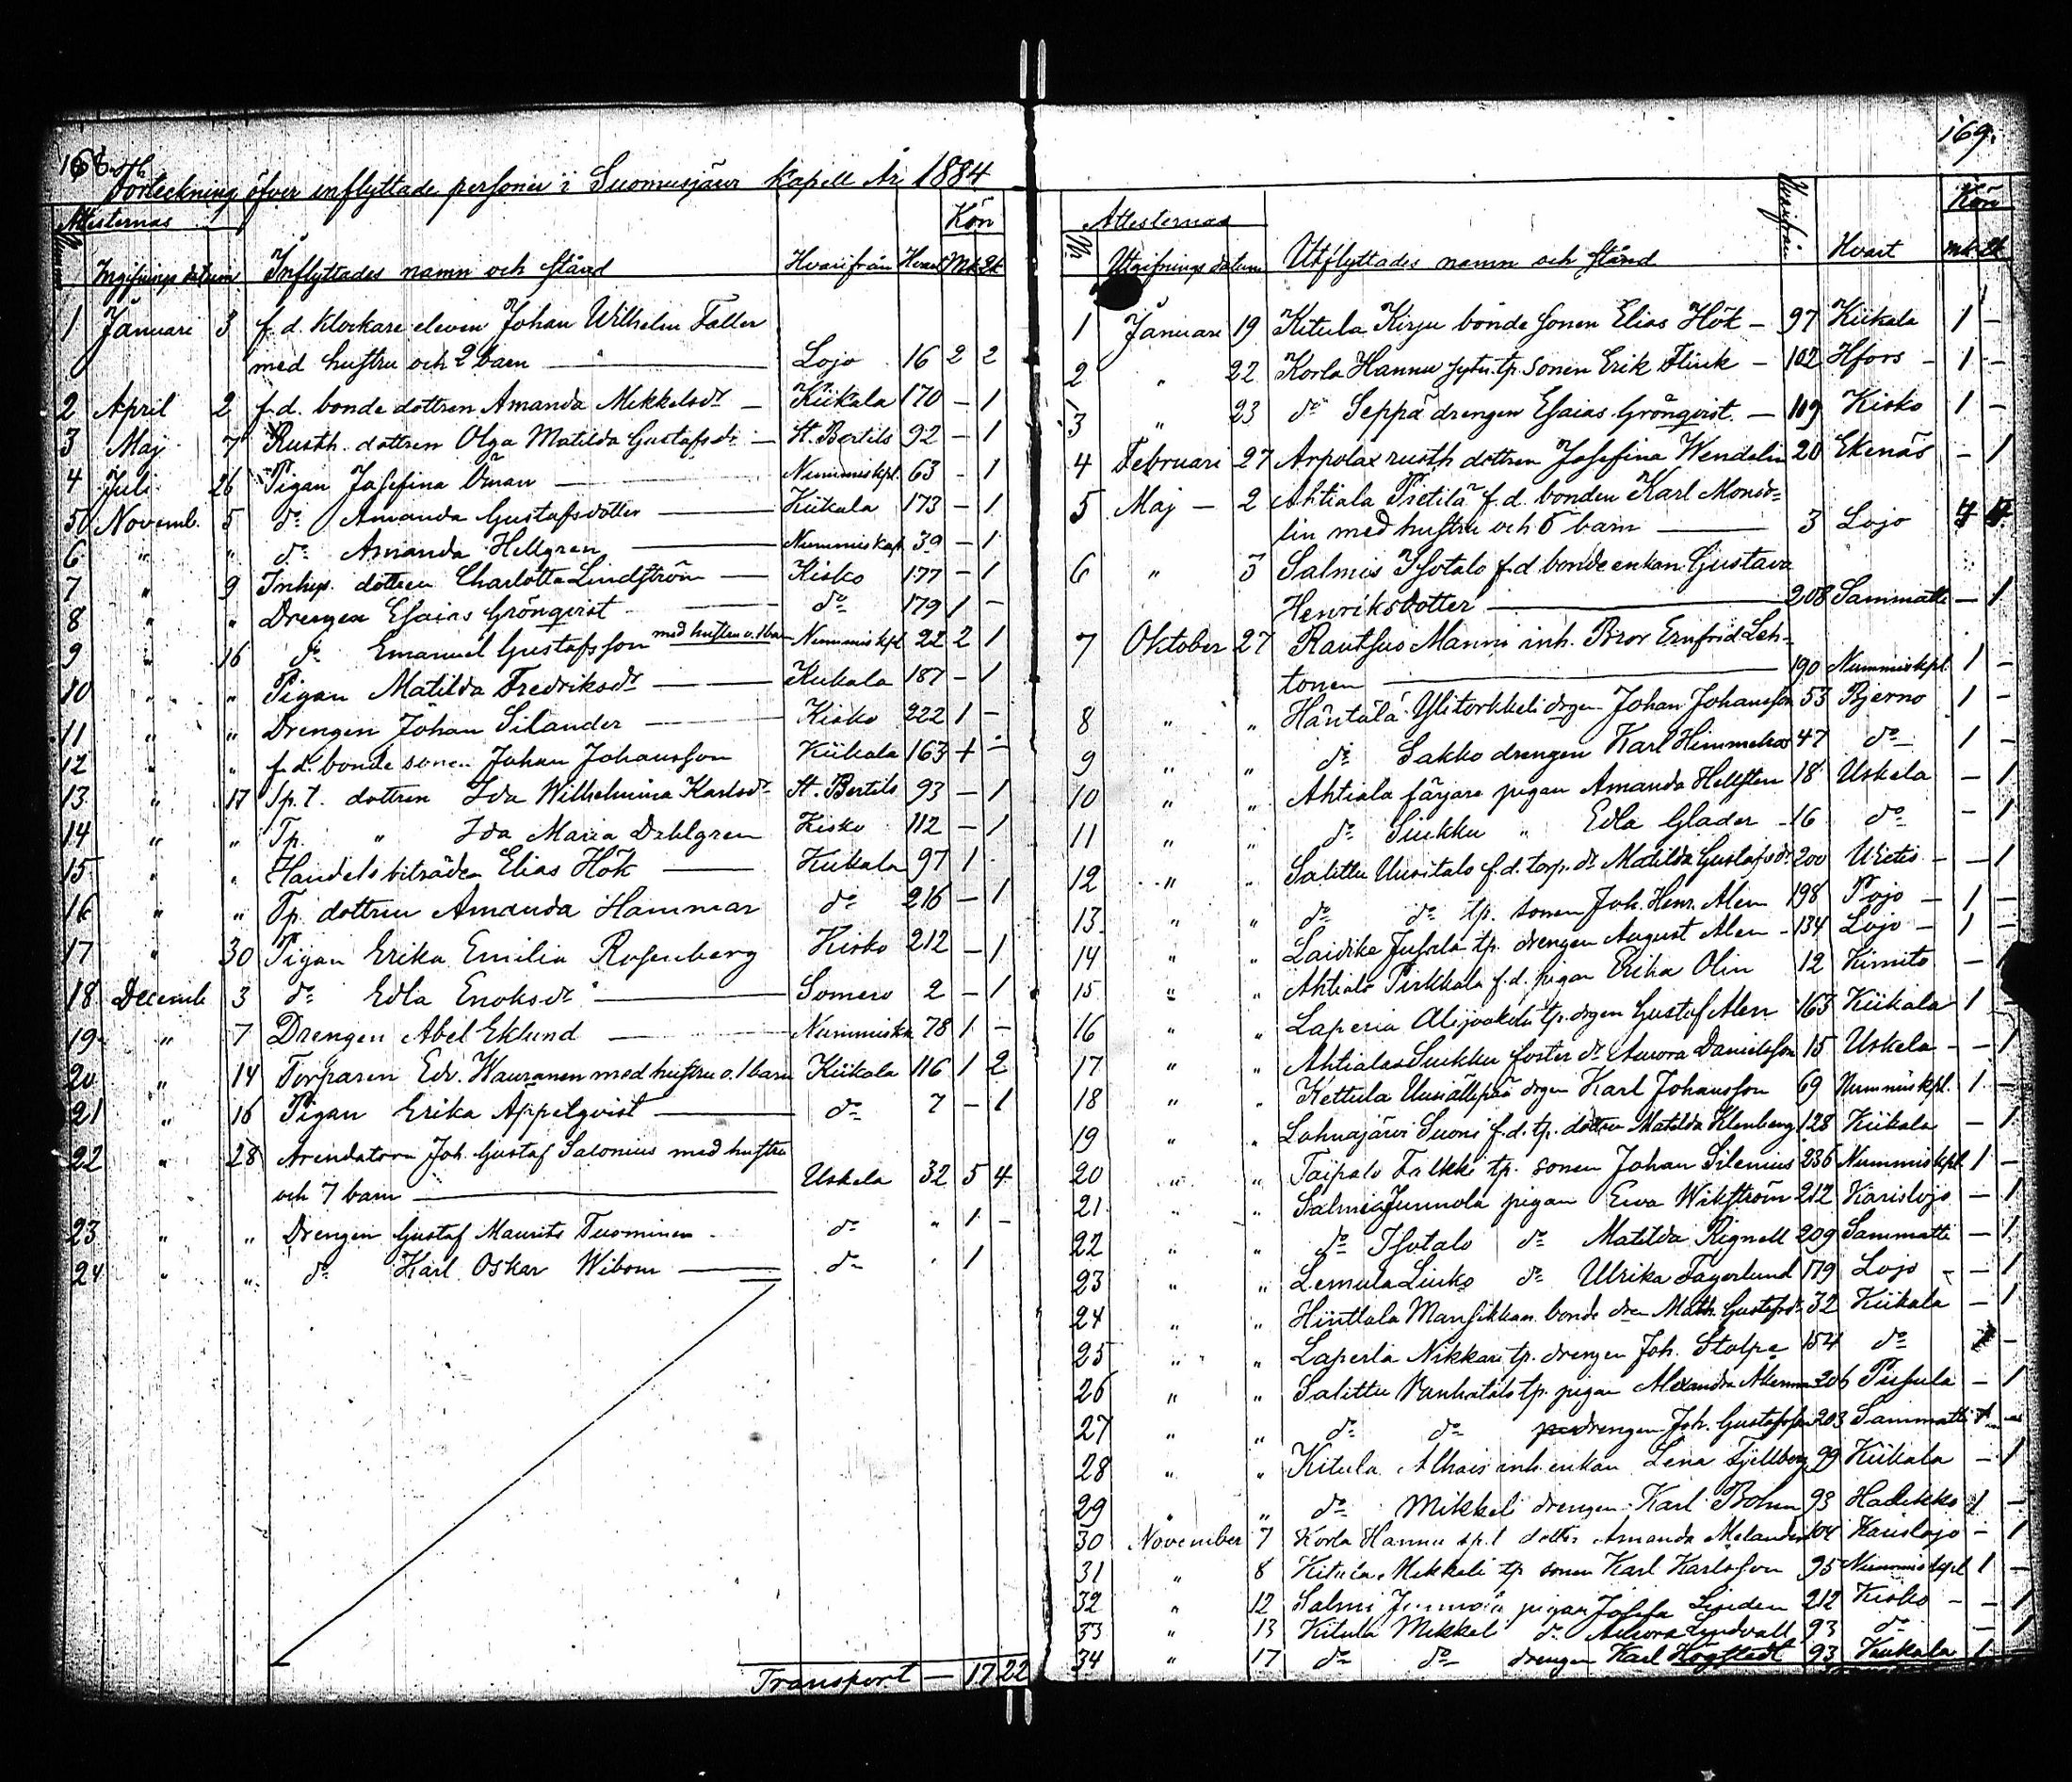 168
Förteckning öfver inflyttade personer i Suomusjärvi Kapell År 1884
Attesternas Kön
Ingifnings datum Inflyttades namn och stånd Hvarifrån Hvart Mk Qk
1 Januari 3 f.d. klockare eleven Johan Wilhelm Faller
med hustru och 2 barn — Lojo 16 2 2
2 April 2 f.d. bonde dottren Amanda Mikkelsdr — Kiikala 170 – 1
3 Maj 7 Rusth. dottren Olga Matilda Gustafsdr — St. Bertils 92 – 1
4 Juli 26 Pigan Josefina Öman — Nummis kpl. 63 – 1
5 Novemb. 5 do Amanda Gustafsdotter — Kiikala 173 – 1
6 " " do Amanda Hellgren — Nummis kap 39 – 1
7 " 9 Inhys. dottren Charlotta Lindström — Kisko 177 – 1
8 " " Drengen Esaias Grönqvist — do 179 1 –
9 " 16 do Emanuel Gustafsson med hustru o. 1 barn Nummis kpl 22 2 1
10 " " Pigan Matilda Fredriksdr — Kiikala 187 – 1
11 " " Drengen Johan Silander — Kisko 222 1 –
12 " " f.d. bonde sonen Johan Johansson Kiikala 163 1 –
13 " 17 Sp.t. dottren Ida Wilhelmina Karlsdr St. Bertils 93 – 1
14 " " Tp. " Ida Maria Dahlgren Kisko 112 – 1
15 " " Handelsbiträden Elias Hök — Kiikala 97 1
16 " " Tp. dottren Amanda Hammar do 216 – 1
17 " 30 Pigan Erika Emilia Rosenberg Kisko 212 – 1
18 Decemb 3 do Edla Enoksdr — Somero 2 – 1
19 " 7 Drengen Abel Eklund — Nummiska 78 1 –
20 " 14 Torparen Edv. Wauranen med hustru o. 1 barn Kiikala 116 1 2
21 " 16 Pigan Erika Appelqvist — do 7 – 1
22 " 28 Arendatorn Joh. Gustaf Salonius med hustru
och 7 barn — Uskela 32 5 4
23 " " Drengen Gustaf Maurits Tuominen do " 1 –
24 " " do Karl Oskar Wibom — do " 1
Transport — 17 22
169.
Attesternas Kön
Nr. Utgifnings datum Utflyttades namn och stånd Hvarifrån Hvart Mk Qk
1 Januari 19 Kitula Kirju bonde sonen Elias Hök — 97 Kiikala 1 –
2 " 22 Korla Hannu tp. sonen Erik Flink — 102 Hfors – 1 –
3 " 23 do Seppä drengen Esaias Grönqvist — 109 Kisko 1 –
4 Februari 27 Arpolax rusth dottren Josefina Wendelin 20 Ekenäs – 1
5 Maj – 2 Ahtiala Pietilä f.d. bonden Karl Monsd=
lin med hustru och 5 barn — 3 Lojo
6 " 3 Salmis Isotalo f.d. bonde enkan Gustava
Henriksdotter — 208 Sammatti – 1
7 Oktober 27 Rautsuo Manni inh. Bror Ernfrid Leh-
tonen — 190 Nummis kpl 1 –
8 " " Häntälä Ylitorkkeli drgen Johan Johansson 53 Bjerno 1 –
9 " " do Sakko drengen Karl 47 do 1 –
10 " " Ahtiala färjare pigan Amanda Hellsten 18 Uskela – 1
11 " " do Siukku " Edla Glader – 16 do – 1
12 " " Salittu Uusitalo f.d. torp. dr Matilda Gustafsdr 200 – 1
13 " " do do tp. sonen Joh. Henr. Alen 198 Pojo – 1 –
14 " " Laidike Jussila tp. drengen August Alen – 134 Lojo – 1 –
15 " " Ahtiala Pirkkala f.d. pigan Erika Olin 12 Kimito –
16 " " Laperla Alijaakola tp. drgen Gustaf Alen 163 Kiikala 1 –
17 " " Ahtiala Siukku foster dr Aurora Danielsson 15 Uskela – – 1
18 " " Kettula drgen Karl Johansson 69 Nummis kpl. 1 –
19 " " Lahnajärvi Suoni f.d. tp. dottren Matilda Klenberg 128 Kiikala – 1
20 " " Taipalo Falkki tp. sonen Johan Silenius 236 Nummis kpl 1 –
21 " " Salmis Junnola pigan Ewa Wikström 212 Karislojo – 1
22 " " do Isotalo do Matilda Rignell 209 Sammatti – 1
23 " " Lemula Liuko do Ulrika Fagerlund 179 Lojo – – 1
24 " " Hintlala Mansikkan bonde dren Math. Gustafsdr 32 Kiikala – 1
25 " " Laperla Nikkari tp. drengen Joh. Stolpe 154 do
26 " " Salittu Vanhatalo tp. pigan Alexandra 206 Pusula – 1
27 " " do do drengen Joh. Gustafsson 203 Sammatti 1 –
28 " " Kitula Alhais inh. enkan Lena Fjellberg 99 Kiikala – 1
29 " " do Mikkeli drengen Karl Bohm 93 Halikko 1 –
30 November 7 Korla Hannu sp.t dotter Amanda Melander 104 Karislojo – 1
31 " 8 Kitula Mikkeli tp sonen Karl Karlsson 95 Nummis kpl 1 –
32 " 12 Salmi Junnola pigan Josefa Linden 212 Kisko – – 1
33 " 13 Kitula Mikkel do Aurora Lindvall 93 do – 1
34 " 17 do do drengen Karl Högstedt 93 Kiikala 1